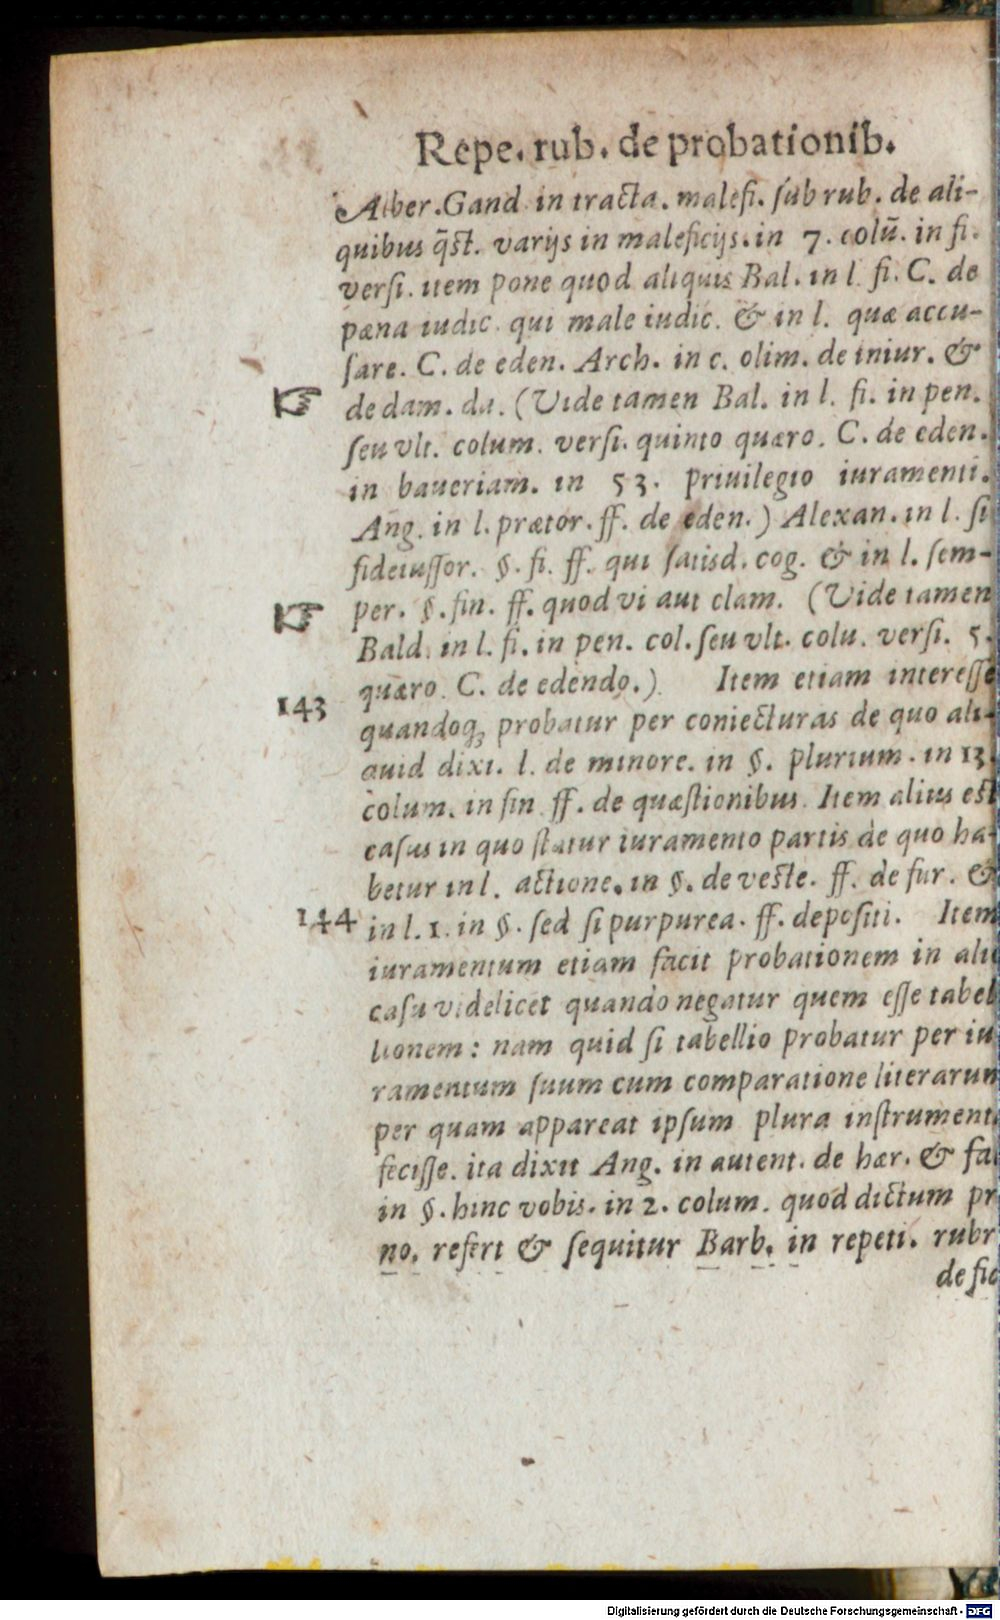 Repe. rub. de probationib.
Alber. Gand. in tracta. malefi. sub rub. de ali-
quibus q̃st. varijs in maleficijs. in 7. colũ. in fi.
versi. item pone quod aliquis Bal. in l. fi. C. de
pæna iudic. qui male iudic. & in l. quæ accu-
sare. C. de eden. Arch. in c. olim. de iniur. &
☞ de dam. da. (Vide tamen Bal. in l. fi. in pen.
seu vlt. colum. versi. quinto quæro. C. de eden.
in baueriam. in 53. priuilegio iuramenti.
Ang. in l. prætor. ff. de eden.) Alexan. in l. si
fideiussor. §. fi. ff. qui satisd. cog. & in l. sem-
☞ per. §. fin. ff. quod vi aut clam. (Vide tamen
Bald. in l. fi. in pen. col. seu vlt. colu. versi. 5.
143 quæro. C. de edendo.) Item etiam interesse
quandoq; probatur per coniecturas de quo ali-
quid dixi. l. de minore. in §. plurium. in 13.
colum. in fin ff. de quæstionibus. Item alius est
casus in quo statur iuramento partis de quo ha-
betur in l. actione. in §. de veste. ff. de fur. &
144 in l. 1. in §. sed si purpurea. ff. depositi. Item
iuramentum etiam facit probationem in
casu videlicet quando negatur quem esse tabel
lionem: nam quid si tabellio probatur per iu
ramentum suum cum comparatione literarum
per quam appareat ipsum plura instrument
fecisse. ita dixit Ang. in autent. de hær. & fal
in §. hinc vobis. in 2. colum. quod dictum pr
no. refert & sequitur Barb. in repeti. rubr
de fid
Digitalisierung gefördert durch die Deutsche Forschungsgemeinschaft - DFG